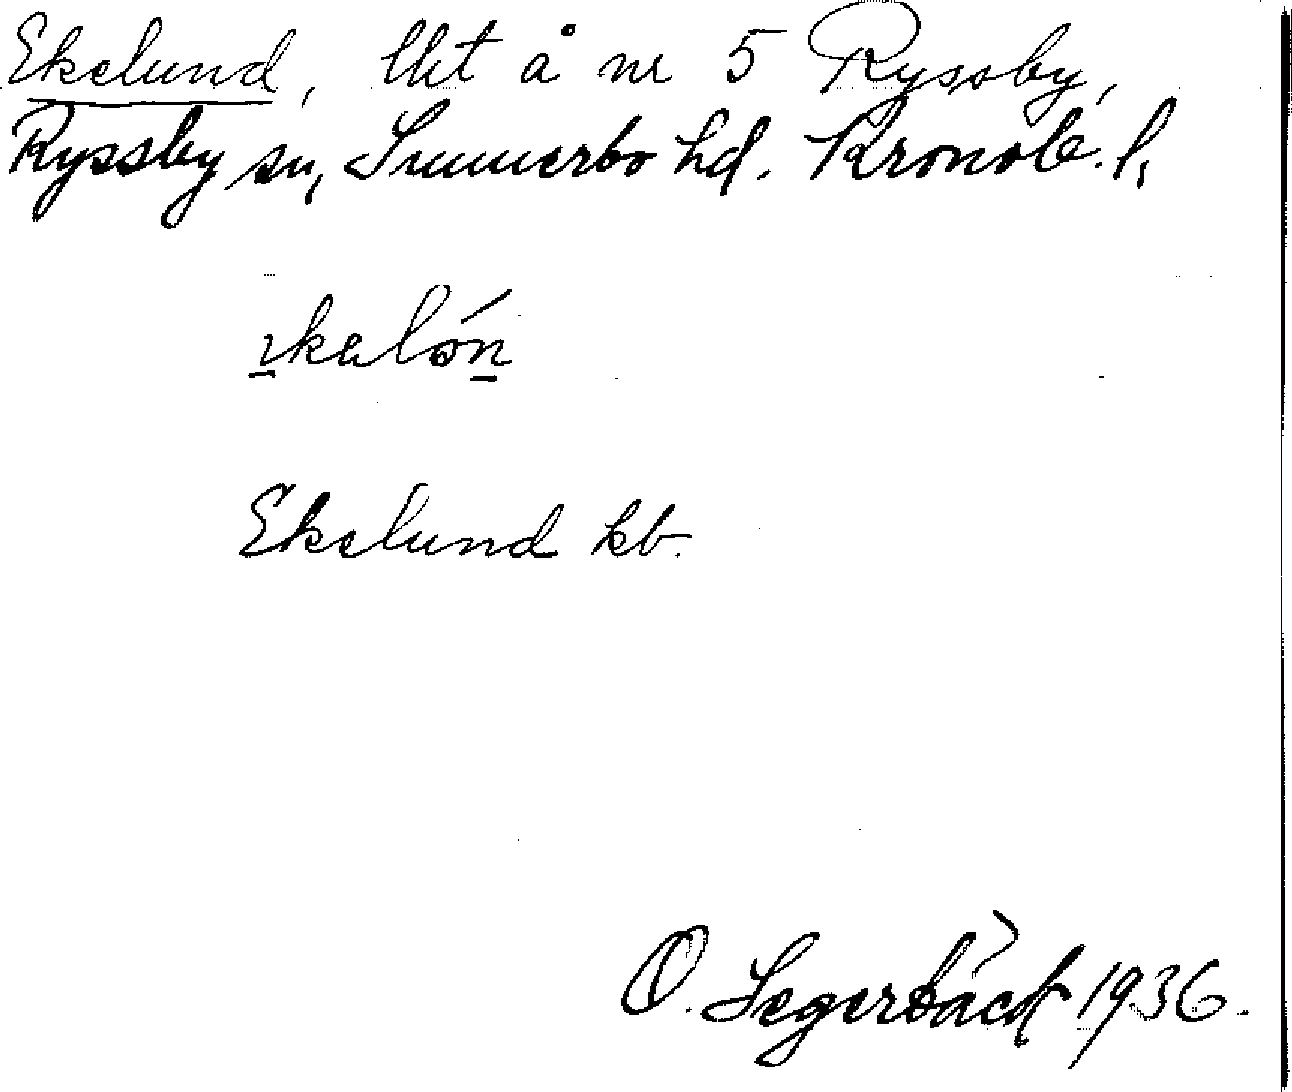 Ekelund, lht å nr 5 Ryssby,
Ryssby sn, Sunnerbo hd. Kronob. l.
Ekelund kb.
O. Segerbäck 1936.